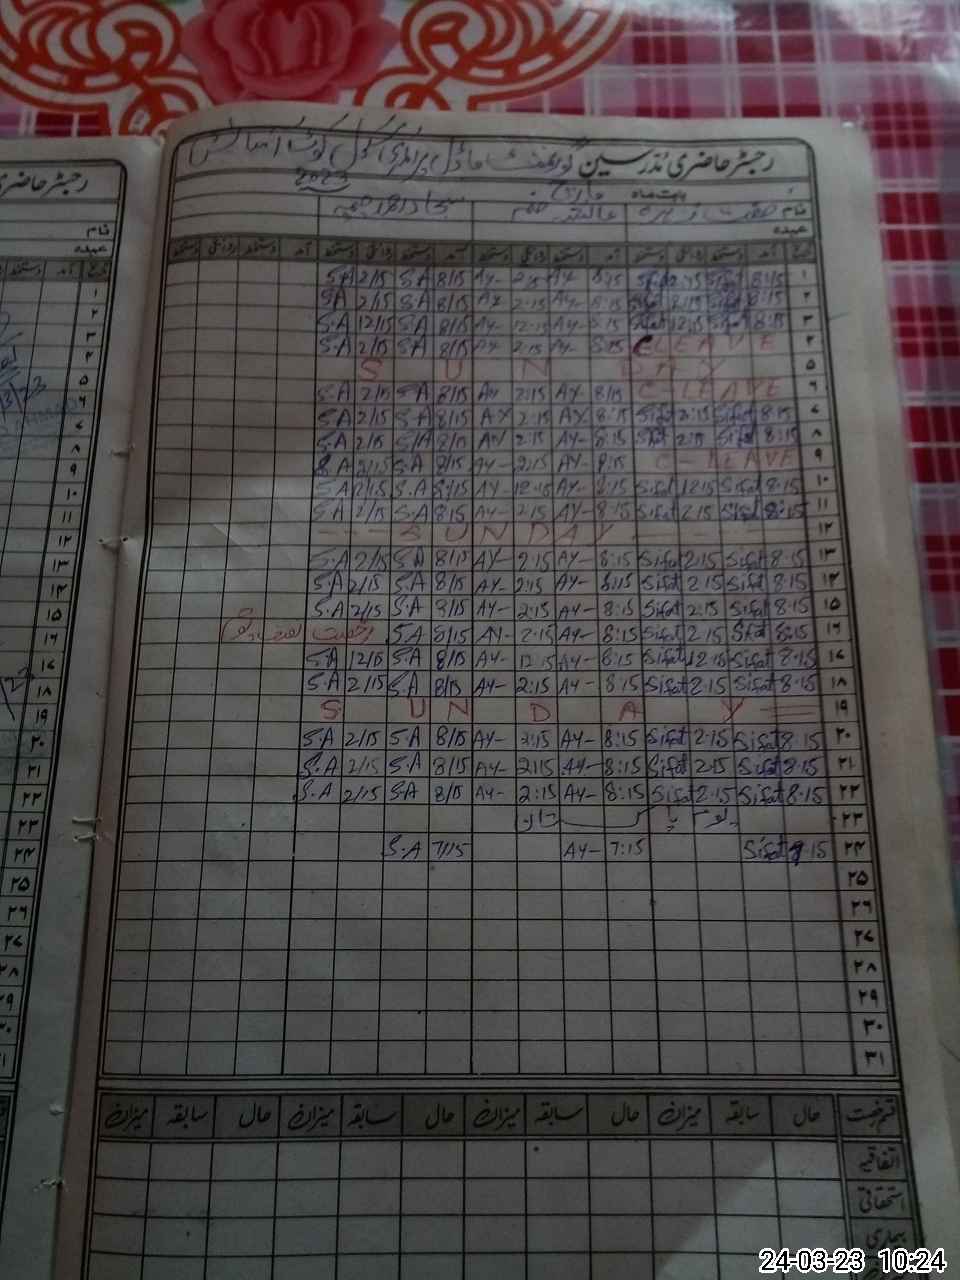 رجسٹر حاضری مدرسین گورنمنٹ ماڈل پرائمری سکول کوٹ
بابت ماہ مارچ 2023
نام
عہدہ
تاریخ آمد دستخط روانگی دستخط آمد دستخط روانگی دستخط آمد دستخط روانگی دستخط آمد دستخط روانگی دستخط
۱ 8:15 Sifat 2:15 Sifat 8:15 AY- 2:15 AY- 8/15 S.A 2/15 S.A
۲ 8:15 Sifat 8:15 Sifat 8:15 AY 2:15 AY 8/15 S.A 2/15 S.A
۳ 8:15 Sifat 12:15 Sifat 8:15 AY- 12:15 AY- 8/15 S.A 12/15 S.A
۴ C LEAVE 8:15 AY- 2:15 AY- 8/15 S.A 2/15 S.A
۵ S U N DAY
۶ C-LEAVE 8/15 AY 2:15 AY 8/15 S.A 2/15 S.A
۷ 8:15 Sifat 2:15 Sifat 8:15 AY 2:15 AY 8/15 S.A 2/15 S.A
۸ 8:15 Sifat 2:15 Sifat 8:15 AY- 2:15 AY 8/15 S.A 2/15 S.A
۹ C-LEAVE 8:15 AY 2:15 AY- 8/15 S.A 2/15 S.A
۱۰ 8:15 Sifat 12:15 Sifat 8:15 AY- 12:15 AY- 8/15 S.A 2/15 S.A
۱۱ 8:15 Sifat 2:15 Sifat 8:15 AY- 2:15 AY- 8/15 S.A 2/15 S.A
۱۲ - - - SUNDAY - - -
۱۳ 8:15 Sifat 2:15 Sifat 8:15 AY- 2:15 AY- 8/15 S.A 2/15 S.A
۱۴ 8:15 Sifat 2:15 Sifat 8:15 AY- 2:15 AY- 8/15 S.A 2/15 S.A
۱۵ 8:15 Sifat 2:15 Sifat 8:15 AY- 2:15 AY- 8/15 S.A 2/15 S.A
۱۶ 8:15 Sifat 2:15 Sifat 8:15 AY- 2:15 AY- 8/15 S.A رخصت
۱۷ 8:15 Sifat 12:15 Sifat 8:15 AY- 12:15 AY- 8/15 S.A 12/15 S.A
۱۸ 8:15 Sifat 2:15 Sifat 8:15 AY- 2:15 AY- 8/15 S.A 2/15 S.A
۱۹ S U N D A Y
۲۰ 8:15 Sifat 2:15 Sifat 8:15 AY- 2:15 AY- 8/15 S.A 2/15 S.A
۲۱ 8:15 Sifat 2:15 Sifat 8:15 AY- 2:15 AY- 8/15 S.A 2/15 S.A
۲۲ 8:15 Sifat 2:15 Sifat 8:15 AY- 2:15 AY- 8/15 S.A 2/15 S.A
۲۳ یوم پاکستان
۲۴ Sifat 7:15 AY- 7:15 S.A 7/15
۲۵
۲۶
۲۷
۲۸
۲۹
۳۰
۳۱
قسم رخصت حال سابقہ میزان حال سابقہ میزان حال سابقہ میزان حال سابقہ میزان
اتفاقیہ
استحقاقی
بیماری
24-03-23 10:24